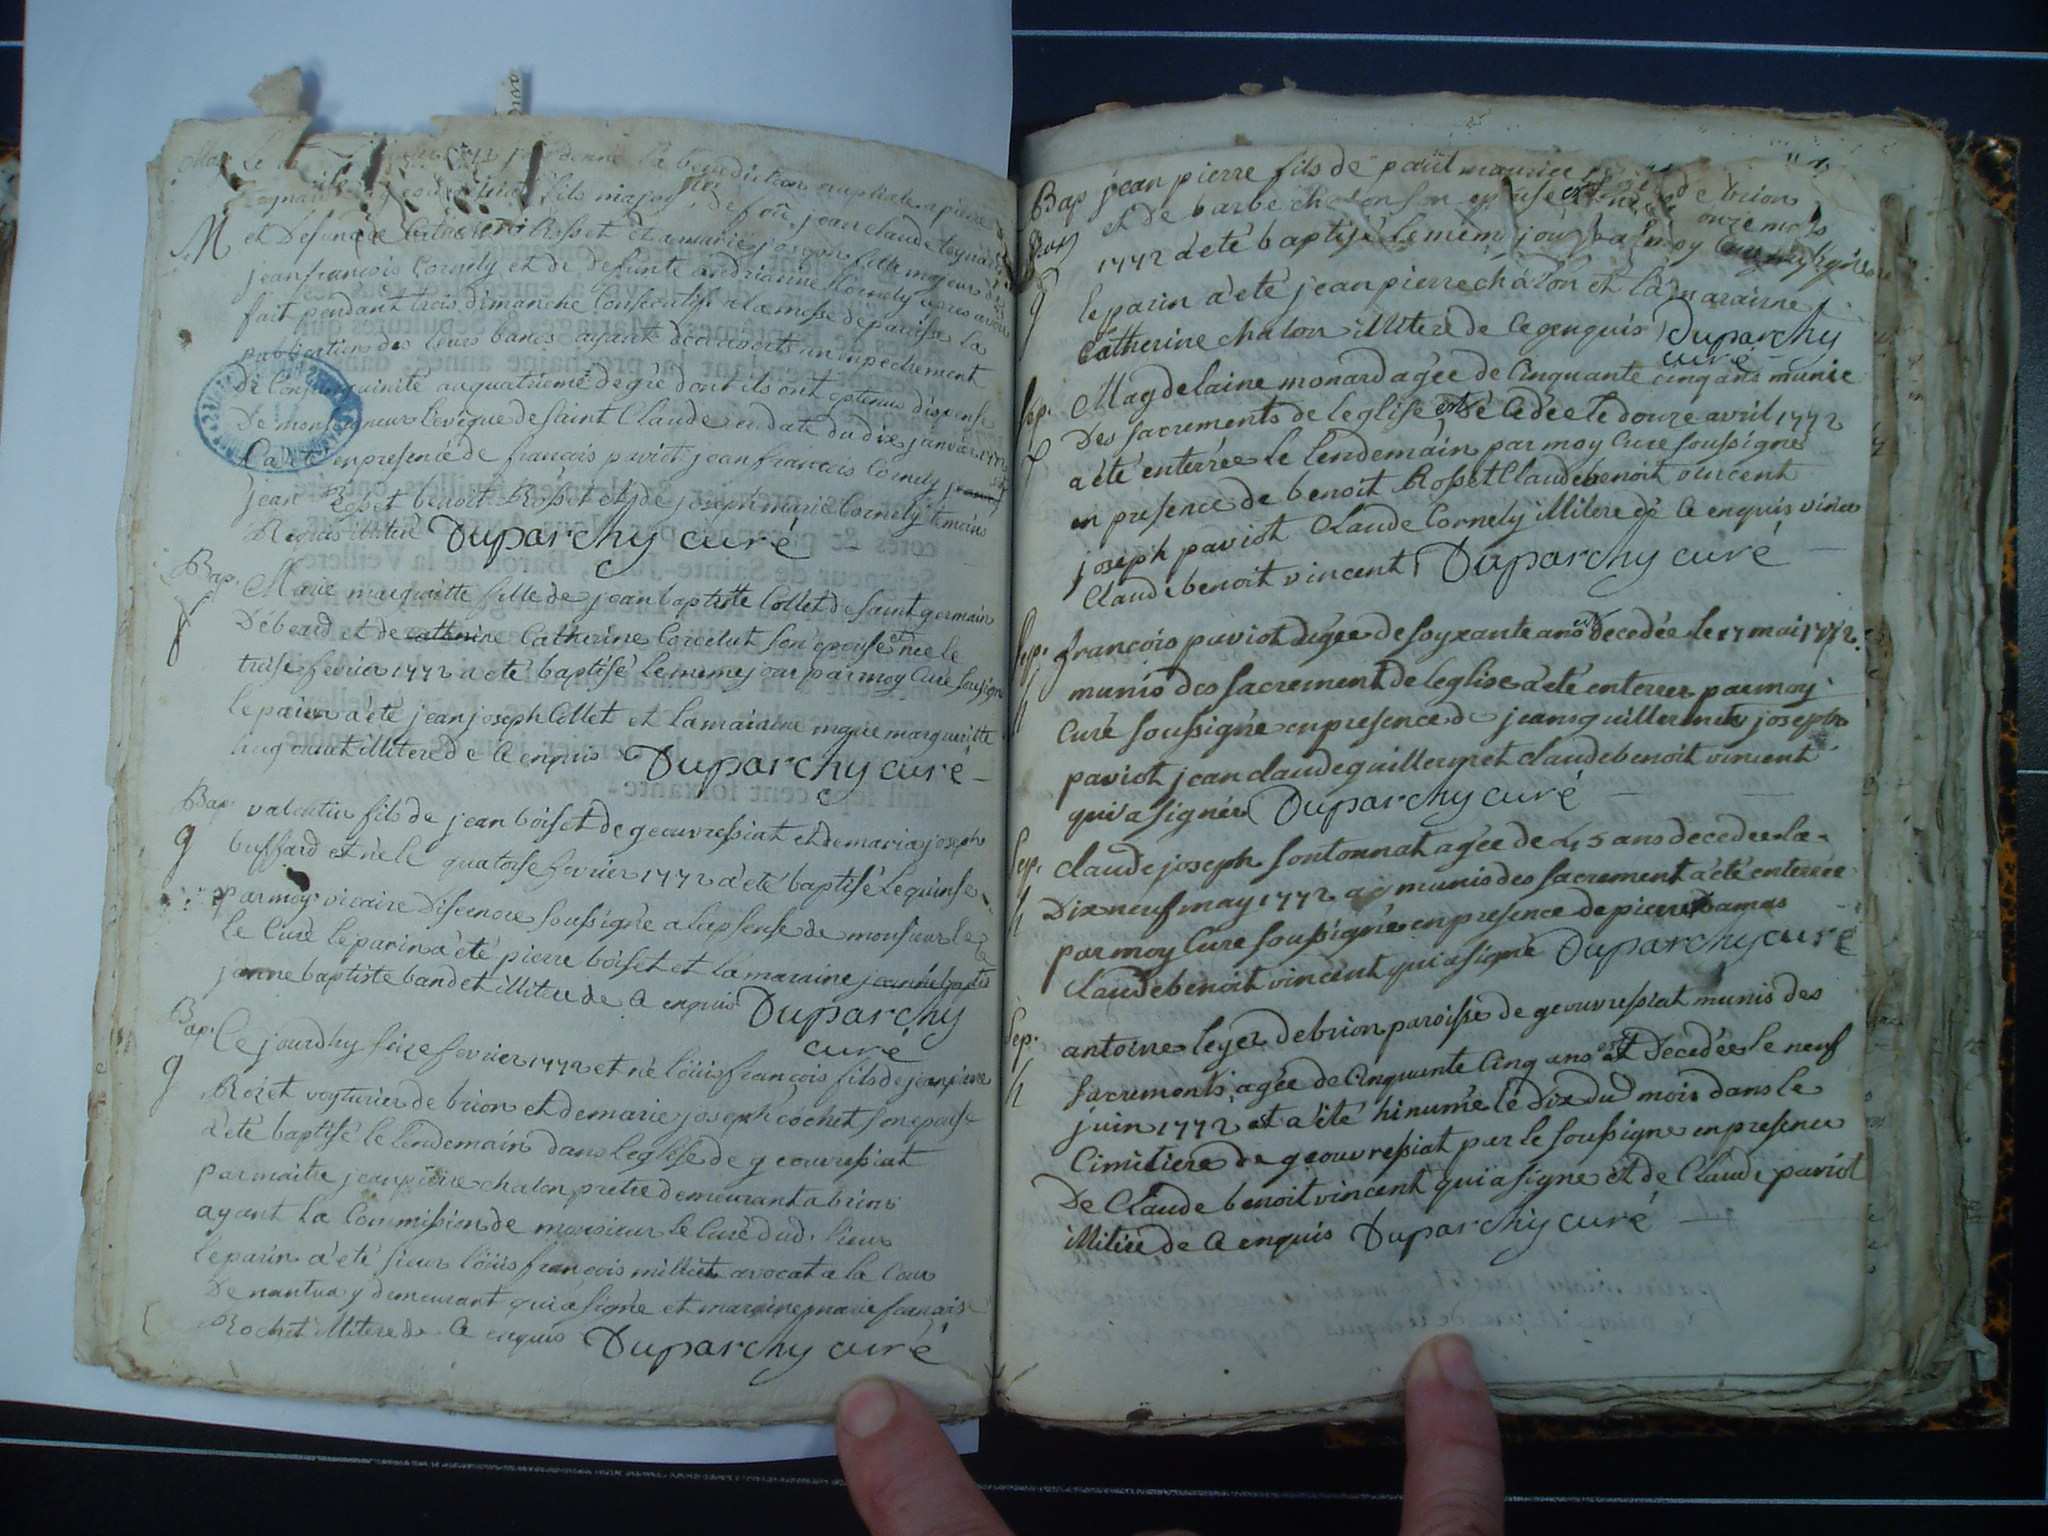 Mar. Le donné la benediction nuptiale a pierre
fils majeur de feu jean claude
M et defunte Rosset et a marie josepte fille majeur de
jean francois Cornely et de defunte andrianne Cornely apres avoir
fait pendant trois dimanche Consecutifs a la messe de paroisse la
publication des leurs bancs ayant decouverts un inpechement
de Consanguinité au quatrieme degré dont ils ont optenus dispense
De monseigneur l'eveque de saint Claude en date du dix janvier 1772
en presence de francois paviot jean francois Cornely
jean Rosset benoit Rosset et de joseph marie Cornely temoins
Requis illiteré Duparchy curé
Bap. Marie margueritte fille de jean baptiste Collet de saint germain
f De beard et de catherine Catherine son epouse est née le
treise fevrier 1772 a eté baptisé le meme jour par moy Curé soussigné
le parin a'eté jean joseph Collet et la maraine marie margueritte
hugonnet illiteré de ce enquis Duparchy curé
Bap. valentin fils de jean boiset de geouvressiat et de maria joseph
g buffard est né le quatorse fevrier 1772 a'eté baptisé le quinse
par moy vicaire soussigné a l'apsense de monsieur le
le Curé le parin a'eté pierre boiset et la maraine jeanne baptis
janne baptiste bandet illiteré de ce enquis Duparchy
curé
Bap. Ce jourdhy seize fevrier 1772 est né löuis francois fils de jean pierre
g Roset voyturier de brion et de marie joseph cochet son epouse
a'eté baptisé le lendemain dans leglise de geouvressiat
par maitre jean pierre chalon pretre demeurant a brion
ayant la Commission de monsieur le Curé dud. lieux
le parin a'eté sieur löuis francois milliet avocat a la Cour
De nantua y demeurant qui a signé et maraine marie francoise
Rochet illiteré de ce enquis Duparchy curé
Bap jean pierre fils de paul maurice de brion
et de barbe chalon son epouse est né onze mars
1772 a'eté baptisé le meme jour par moy
g le parin a'eté jean pierre chalon et la marainne
Catherine chalon illiteré de ce enquis Duparchy
curé
Sep. Magdelaine monard agée de Cinquante cinq ans munie
f Des sacrements de leglise est décedée le douze avril 1772
a'eté enterrée le lendemain par moy Curé soussigné
en presence de benoit Rosset Claude benoit vincent
joseph paviot Claude Cornely illiteré de ce enquis
Claude benoit vincent Duparchy curé
Sep. francois paviot agée de soyxante ans est decedée le 17 mai 1772
h munis des sacrement de leglise a'eté enterrer par moy
Curé soussigné en presence de jean guillermet joseph
paviot jean claude guillermet claude benoit vincent
qui a signée Duparchy curé
Sep. claude joseph sontonnat agée de 45 ans decedée la
h Dix neuf may 1772 munis des sacrement a'eté enterrée
par moy Curé soussignée en presence de pierre Damas
claude benoit vincent qui a signé Duparchy curé
Sep. antoine leger de brion paroisse de geouvressiat munis des
h sacrements agée de Cinquante Cinq ans est Decedée le neuf
juin 1772 et a'eté hinumée le dix du mois dans le
Cimitiere de geouvressiat par le soussigné en presence
De Claude benoit vincent qui a signé et de Claude paviot
illiteré de ce enquis Duparchy curé